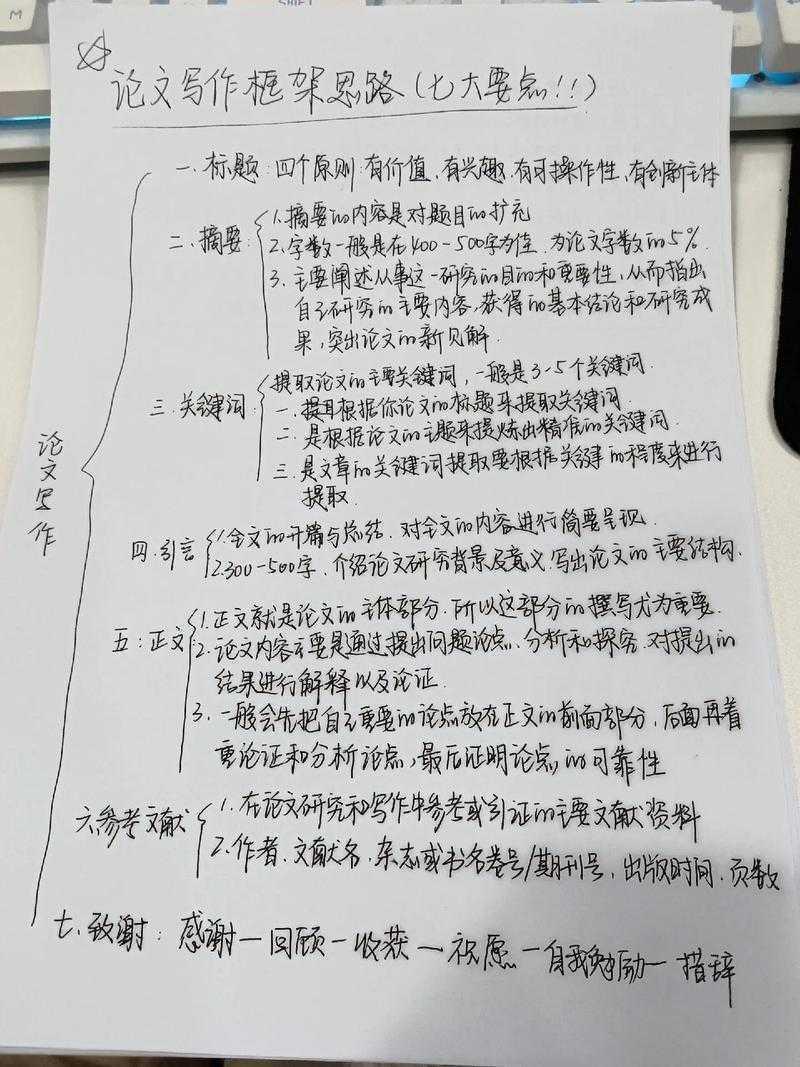 M
SHIFT
论文写作框架思路(七大要点!!)
论文写作
一、标题:四个原则:有价值、有兴趣、有可操作性、有创新主体
二、摘要:
1.摘要的内容是对题目的扩充
2.字数一般是在400-500字为佳,为论文字数的5%.
3.主要阐述从事这一研究的目的和重要性,从而指出
自己研究的主要内容,获得的基本结论和研究成
果,突出论文的新见解.
三.关键词
提取论文的主要关键词,一般是3-5个关键词.
一.提取根据你论文的标题来提取关键词.
二.是根据论文的主题来提炼出精准的关键词.
三.是文章的关键词提取要根据关键的程度来进行
提取.
四.引言
1.全文的开篇与总结.对全文的内容进行简要呈现.
2.300-500字.介绍论文研究背景及意义.写出论文的主要结构.
五:正文
1.正文就是论文的主体部分.所以这部分的撰写尤为重要.
2.论文内容主要是通过提出问题论点、分析和探究.对提出的
结果进行解释以及论证.
3.一般会先把自己重要的论点放在正文的前面部分,后面再着
重论证和分析论点,最后证明论点的可靠性
六参考文献
1.在论文研究和写作中参考或引证的主要文献资料
2.作者.文献名.杂志或书名卷号/期刊号,出版时间.页数
七.致谢:感谢—回顾—收获—祝愿—自我勉励—措辞